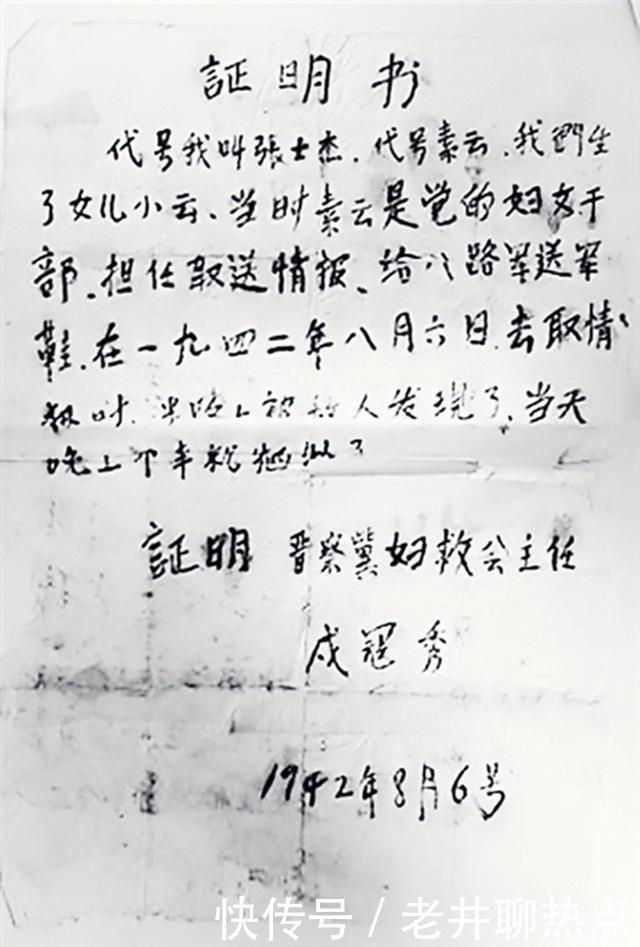 証明书
代号我叫張士杰、代号素云、我們生
了女儿小云、当时素云是党的妇女干
部、担任取送情报、给八路军送军
鞋、在一九四二年八月六日去取情
报时、出路上被敌人发现了、当天
晚上不幸就牺牲了
証明 晋察冀妇救会主任
戎冠秀
1942年8月6号
快传号 / 老井聊热点